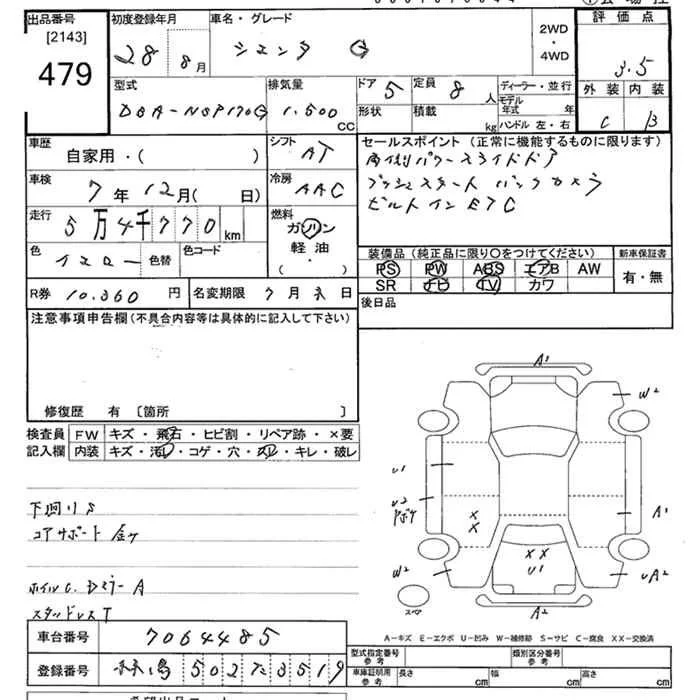 出品番号
[2143]
479
初度登録年月
28 8月
車名・グレード
シエンタ G
2WD
・
4WD
評価点
3.5
外装 内装
C B
型式
DBA-NSP170G
排気量
1.500
CC
ドア 5
形状
定員 8人
積載 kg
ディーラー・並行
モデル年式 年
ハンドル 左・右
車歴
自家用・( )
シフト
AT
セールスポイント(正常に機能するものに限ります)
両側パワースライドドア
プッシュスタート バックカメラ
ビルトインETC
車検
7年12月( 日)
冷房
AAC
走行
5万4千770km
燃料
ガソリン
軽油
( ・ )
色
イエロー
色替
色コード
装備品(純正品に限り〇をつけてください)
PS PW ABS エアB AW
SR ナビ TV カワ
新車保証書
有・無
R券 10.360円
名変期限 7月末日
後日品
注意事項申告欄(不具合内容等は具体的に記入して下さい)
修復歴 有 〔箇所 〕
検査員
記入欄
FW キズ・飛石・ヒビ割・リペア跡・×要
内装 キズ・汚レ・コゲ・穴・スレ・キレ・破レ
下回りS
コアサポート 金ケ
ホイルC. DミラーA
スタッドレスT
A1
W2
U1
U2
ドアボケ
A1
XX
XX
U1
W2
UA2
スペア
A2
A-キズ E-エクボ U-凹み W-補修跡 S-サビ C-腐食 XX-交換済
車台番号 7064485
登録番号 502 3519
型式指定番号
参考
類別区分番号
参考
車庫証明用
参考
長さ cm
幅 cm
高さ cm